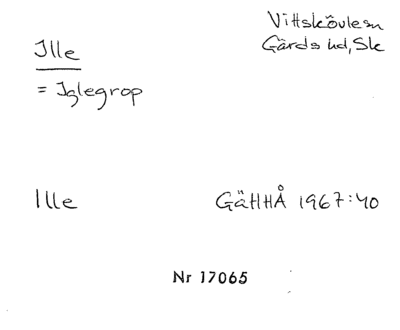 Vittskövle sn
Gärds hd, Sk
Ille
= Iglegrop
Ille
GäHHÅ 1967:40
Nr 17065